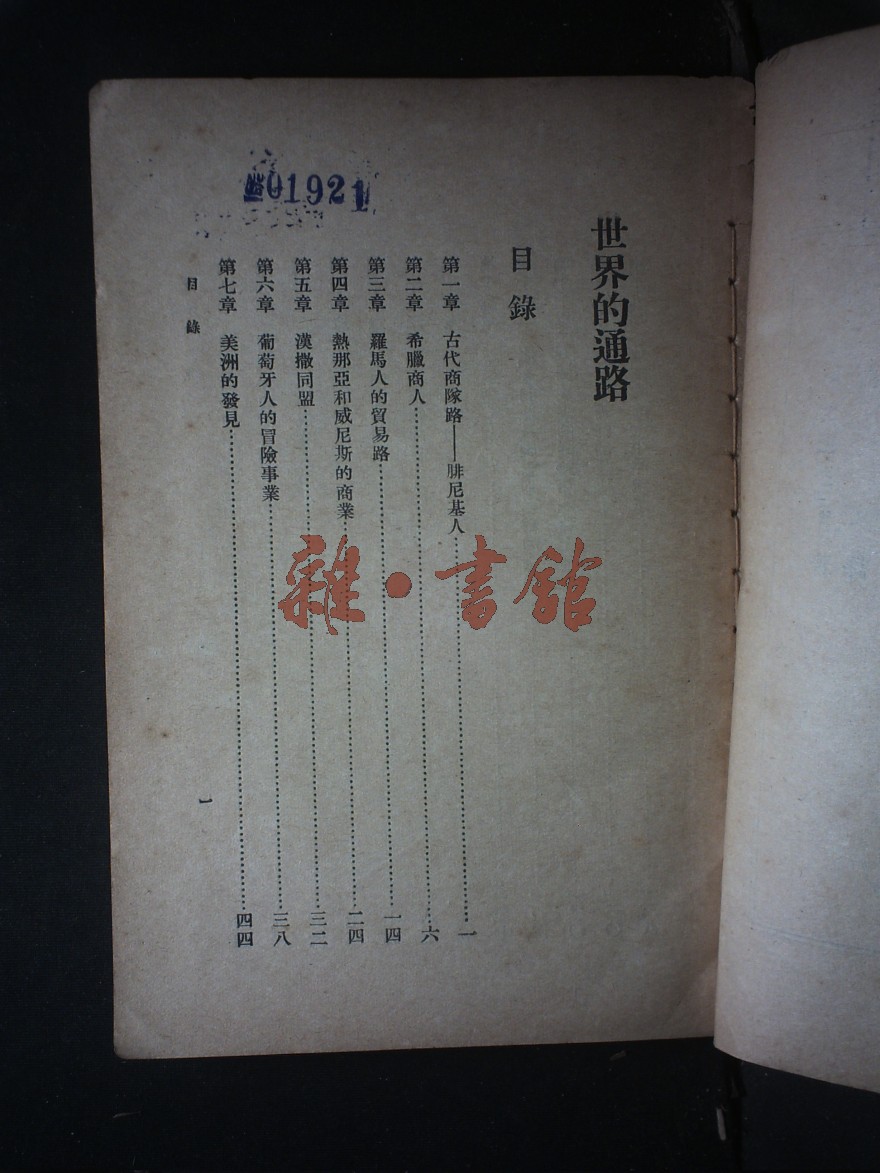 世界的通路
目錄
第一章 古代商隊路——腓尼基人……一
第二章 希臘商人……六
第三章 羅馬人的貿易路……一四
第四章 熱那亞和威尼斯的商業……二四
第五章 漢撒同盟……三二
第六章 葡萄牙人的冒險事業……三八
第七章 美洲的發見……四四
目錄
一
01921
雜·書館